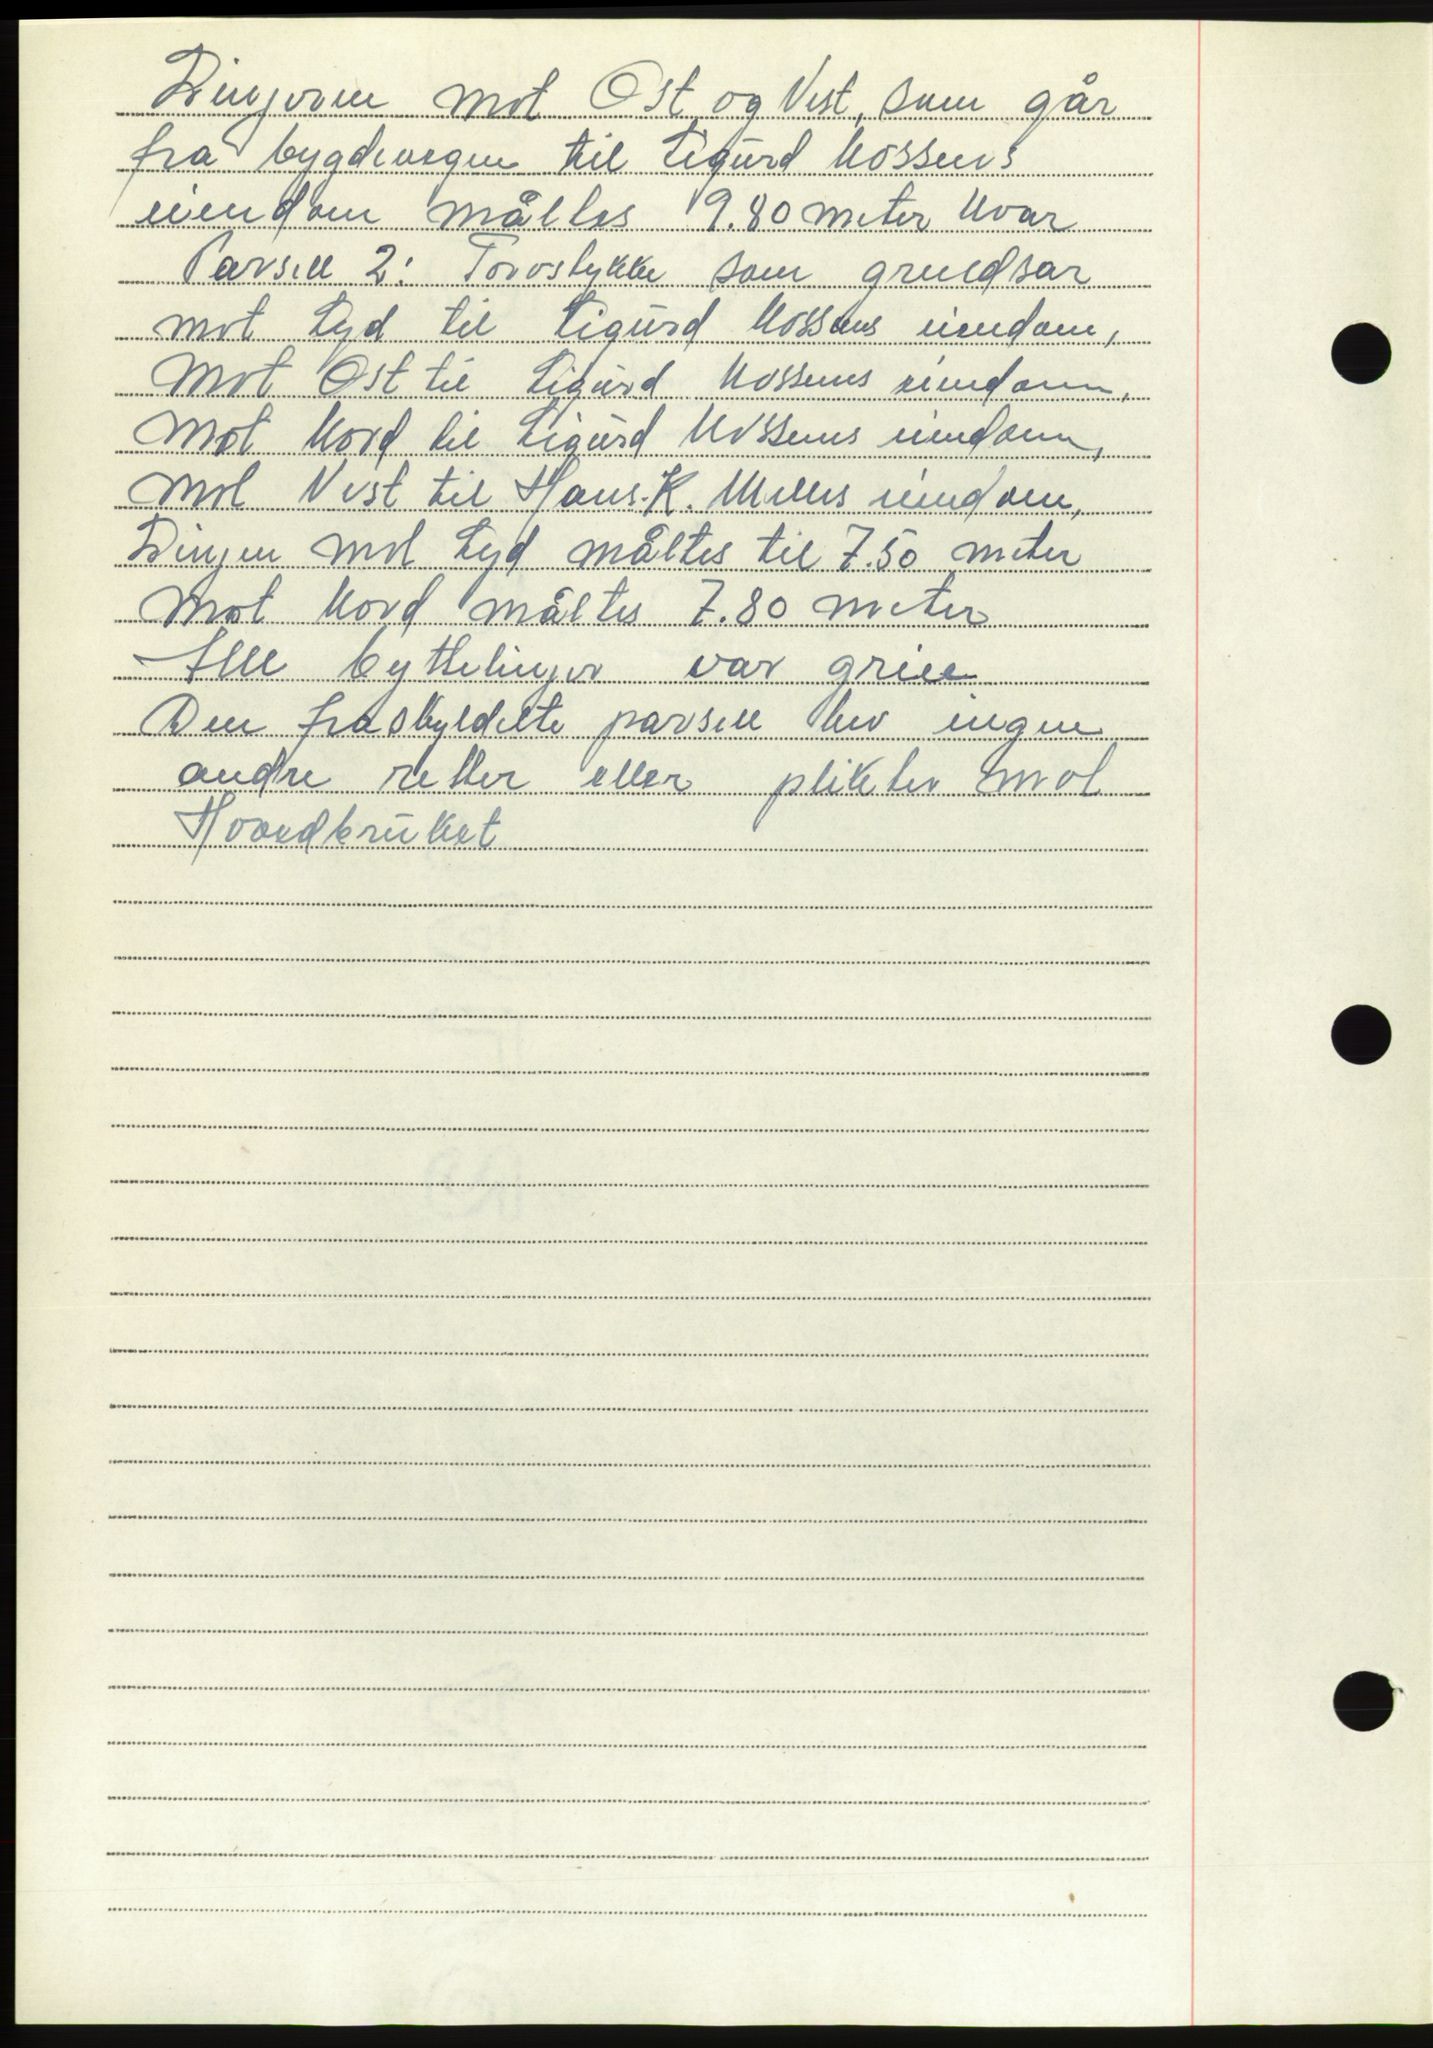 Linjeren mot Ost og Vest, som går
fra bygdevegen til Sigurd Nossens
eiendom måltes 9.80 meter hvar
Parsell 2: Torvstykke som grendsar
mot Syd til Sigurd Nossens eiendom,
mot Ost til Sigurd Nossens eiendom,
mot Nord til Sigurd Nossens eiendom,
mot Vest til Hans K. eiendom,
Linjen mot Syd måltes til 7.50 meter
mot Nord måltes 7.80 meter
Alle byttelinjer var greie
Den fraskyldelte parsell hev ingen
andre retter eller plikter mot
Hovedbruket